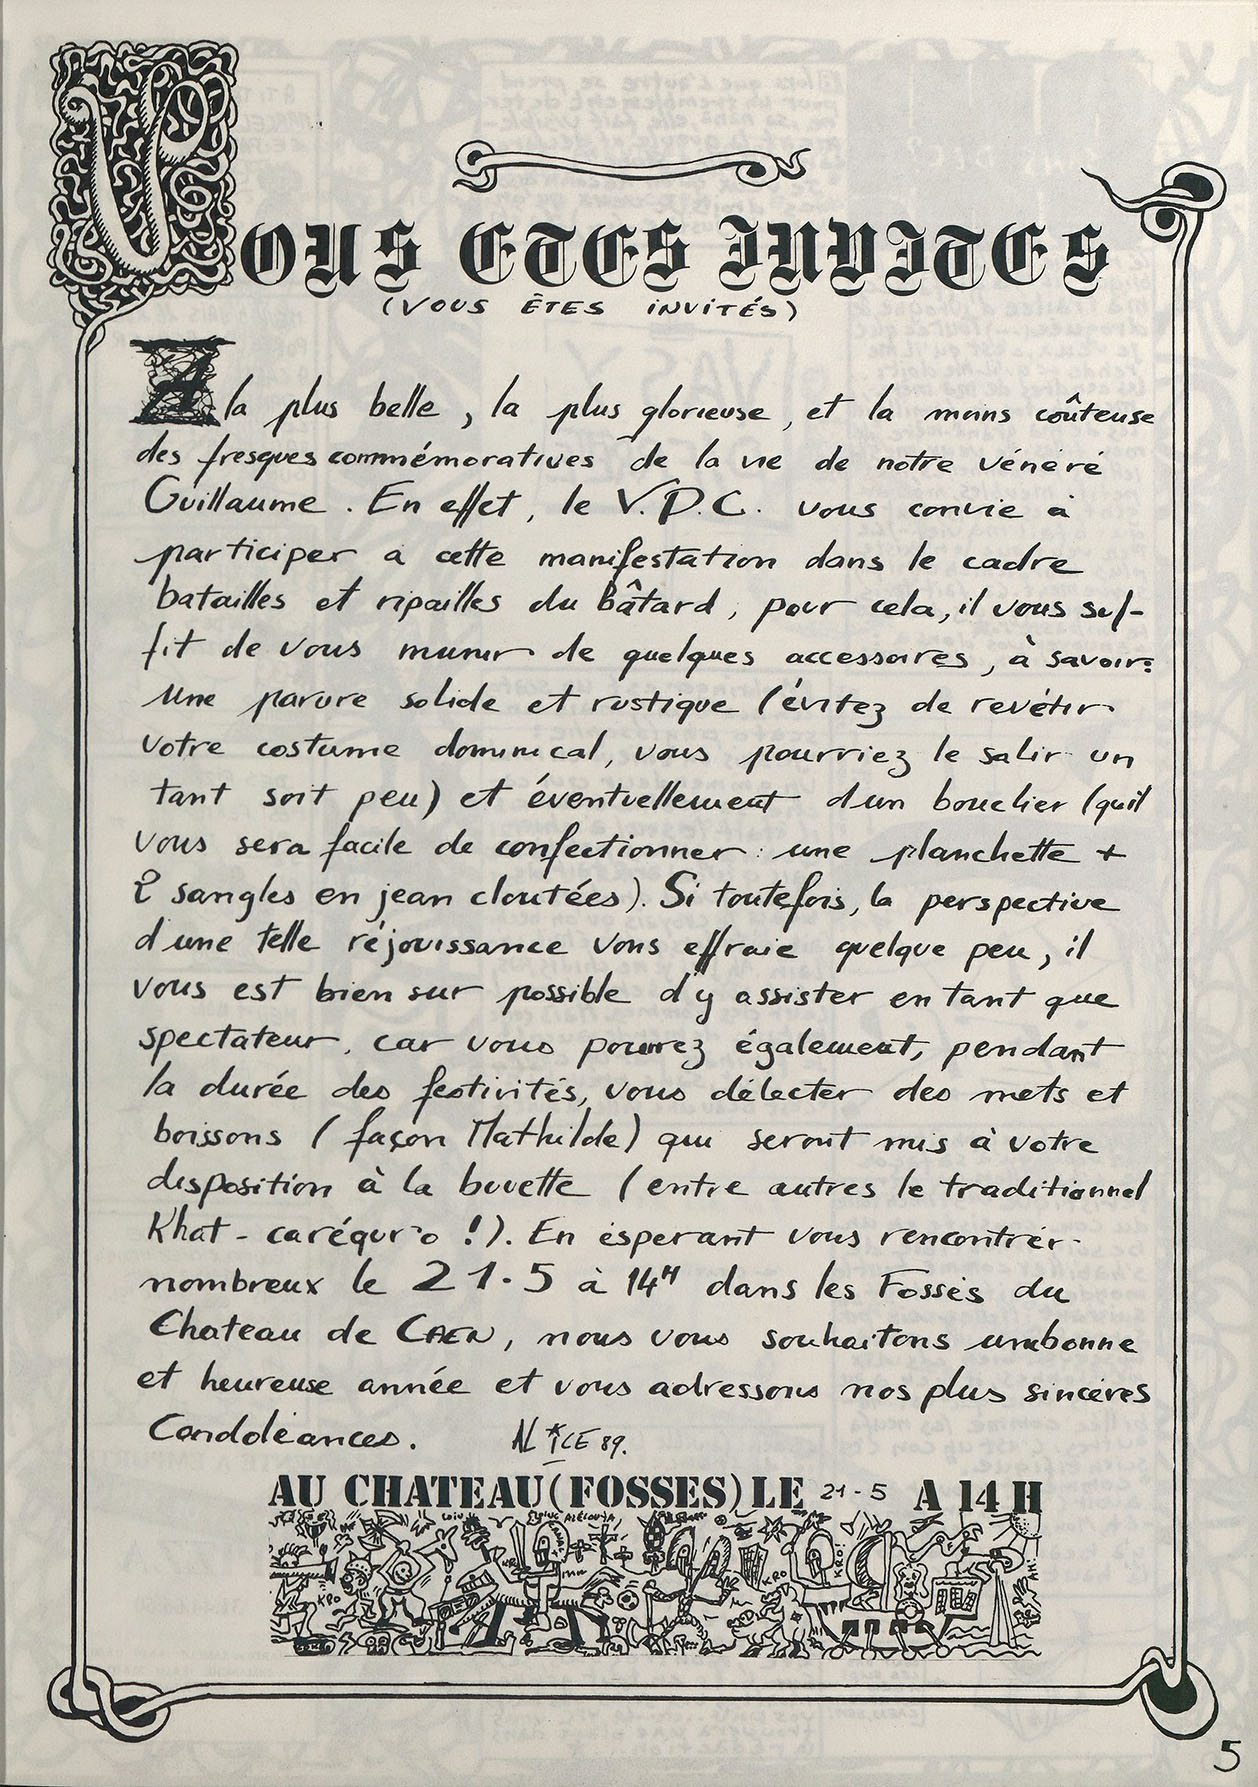 VOUS ETES INVITES
(VOUS ÊTES INVITÉS)
A la plus belle, la plus glorieuse, et la moins coûteuse
des fresques commémoratives de la vie de notre vénéré
Guillaume. En effet, le V.P.C. vous convie à
participer a cette manifestation dans le cadre
batailles et ripailles du bâtard, pour cela, il vous suf-
fit de vous munir de quelques accessoires, à savoir:
une parure solide et rustique (évitez de revétir
votre costume dominical, vous pourriez le salir un
tant soit peu) et éventuellement d'un bouclier (qu'il
vous sera facile de confectionner : une planchette +
2 sangles en jean cloutées). Si toutefois, la perspective
d'une telle réjouissance vous effraie quelque peu, il
vous est bien sur possible d'y assister en tant que
spectateur, car vous pourrez également, pendant
la durée des festivités, vous délecter des mets et
boissons (façon Mathilde) qui seront mis à votre
disposition à la buvette (entre autres le traditionnel
Khat-caréqur'o !). En espérant vous rencontrer
nombreux le 21.5 à 14H dans les Fossés du
Chateau de CAEN, nous vous souhaitons une bonne
et heureuse année et vous adressons nos plus sincères
Condoléances. ALICE 89.
AU CHATEAU (FOSSES) LE 21-5 A 14 H
KRO
KRO
KRO!
5